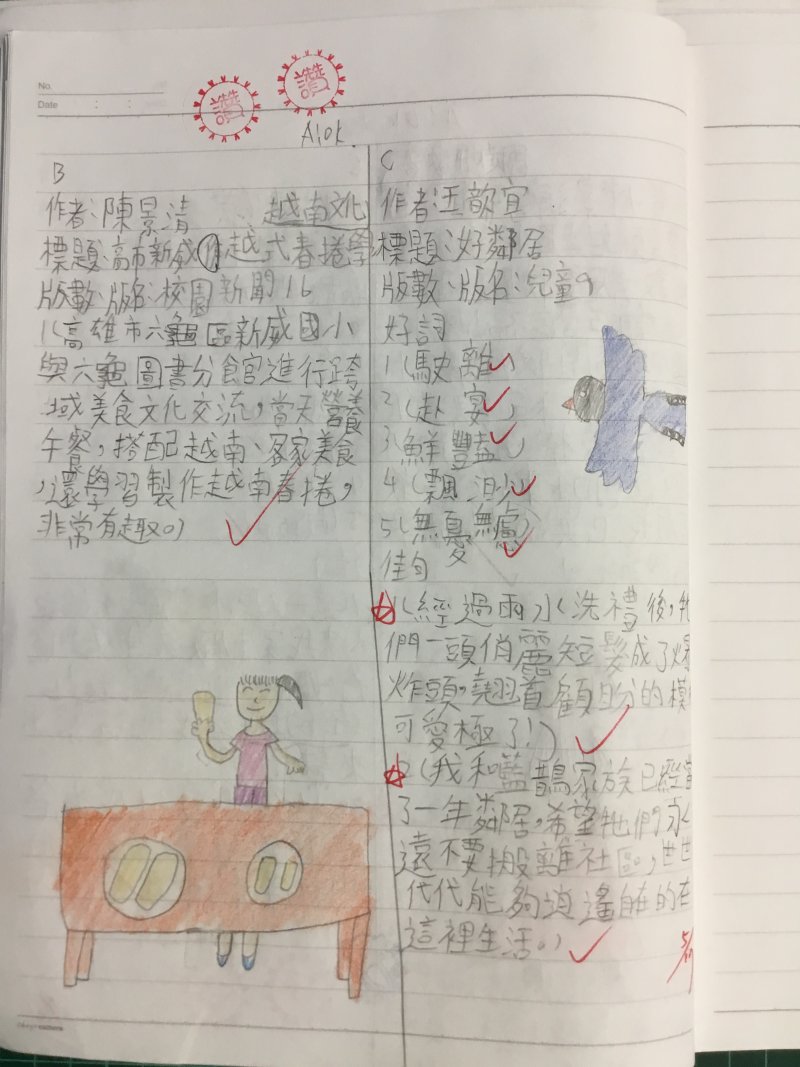 No.
Date : :
讚
讚
A10K.
B
作者:陳景清
越南文化
標題:高市新威作越式春捲學
版數、版名:校園新聞16
1(高雄市六龜區新威國小
與六龜圖書分館宮進行跨
域美食文化交流,當天營養
午餐,搭配越南、客家美食
,還學習製作越南春捲,
非常有趣。)
C
作者:王歆宜
標題:好鄰居
版數、版名:兒童9
好詞
1(駛離)
2(赴宴)
3(鮮豔)
4(飄渺)
5(無憂無慮)
佳句
1(經過雨水洗禮後,牠
們一頭俏麗短髮成了爆
炸頭,翹首顧盼的模
可愛極了!)
2(我和藍鵲家族已經當
了一年鄰居,希望牠們永
遠不要搬離社區,世世
代代能夠逍遙自在的在
這裡生活。)